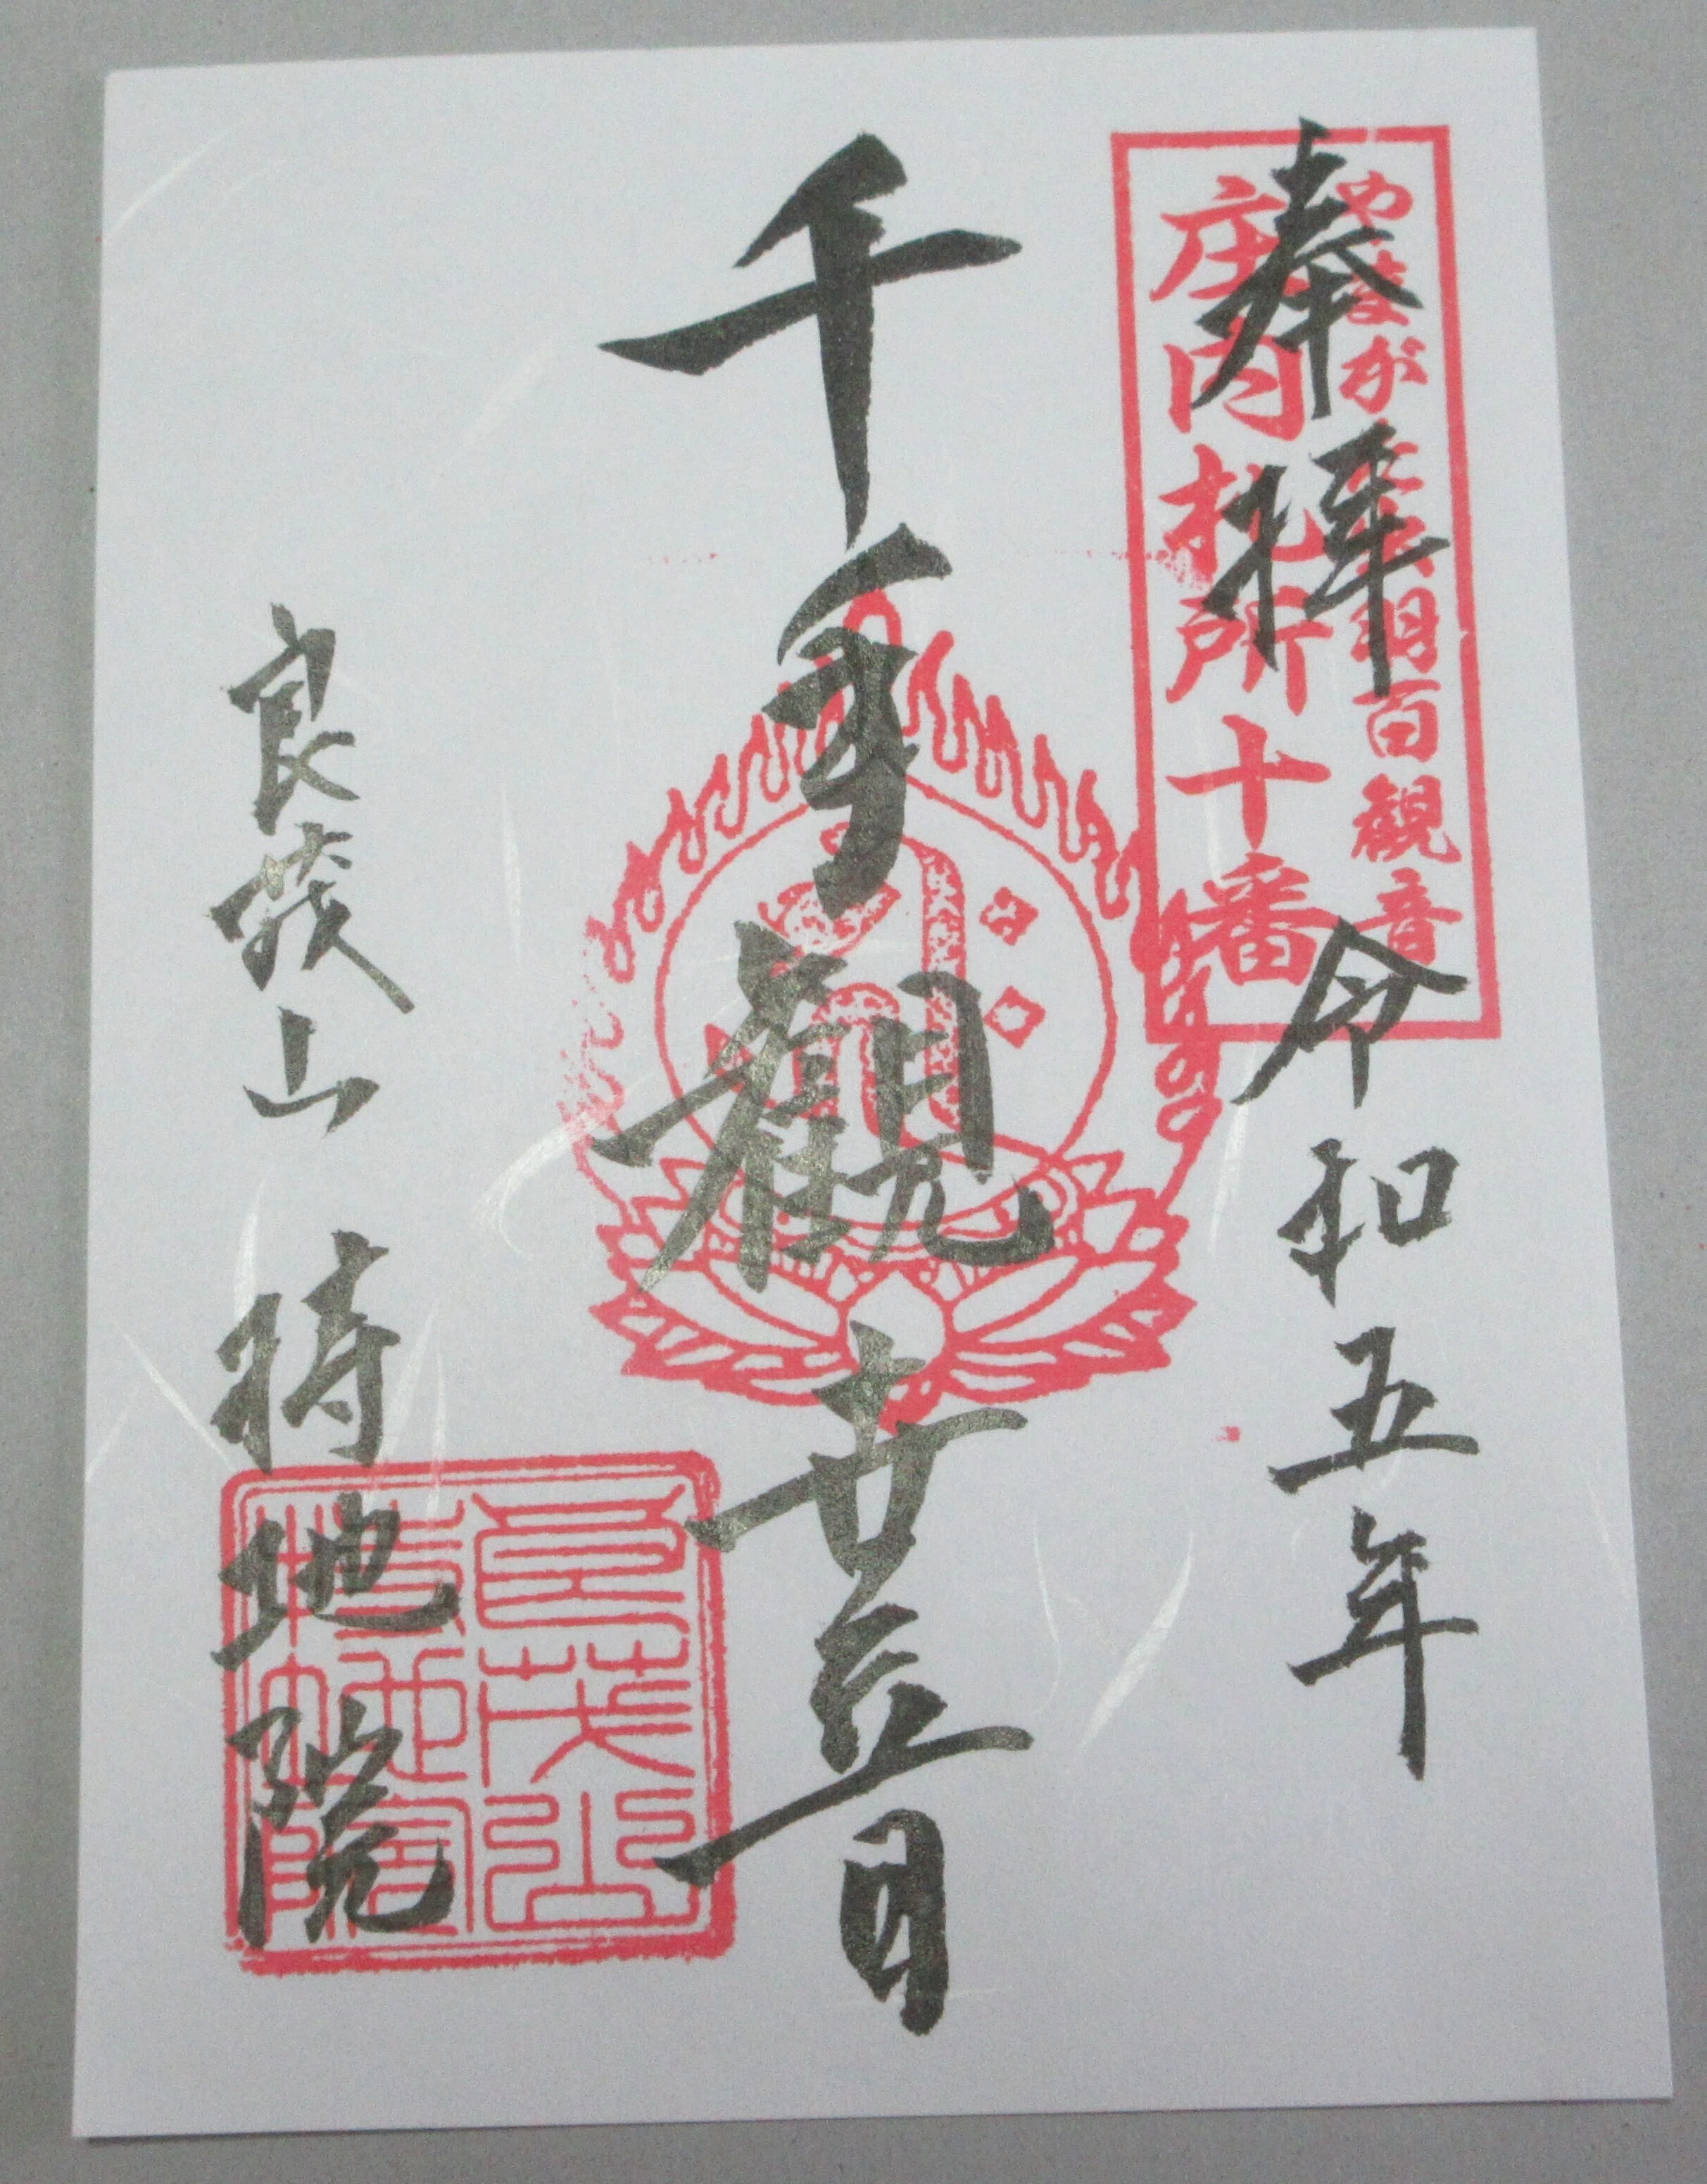 奉拝
令和五年
やまがた出羽百観音
庄内札所十番
千手観世音
良茂山 持地院
良茂山
持地院